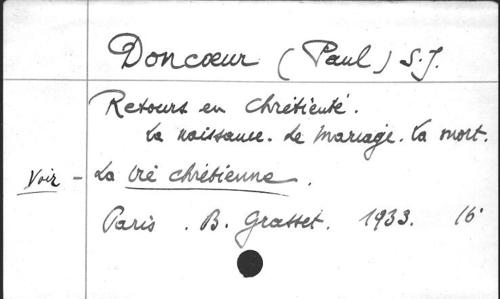 Doncœur (Paul) S.J.
Retours en Chrétienté.
La naissance. Le Mariage. La mort.
Voir - La vie chrétienne.
Paris. B. Grasset. 1933. 16°